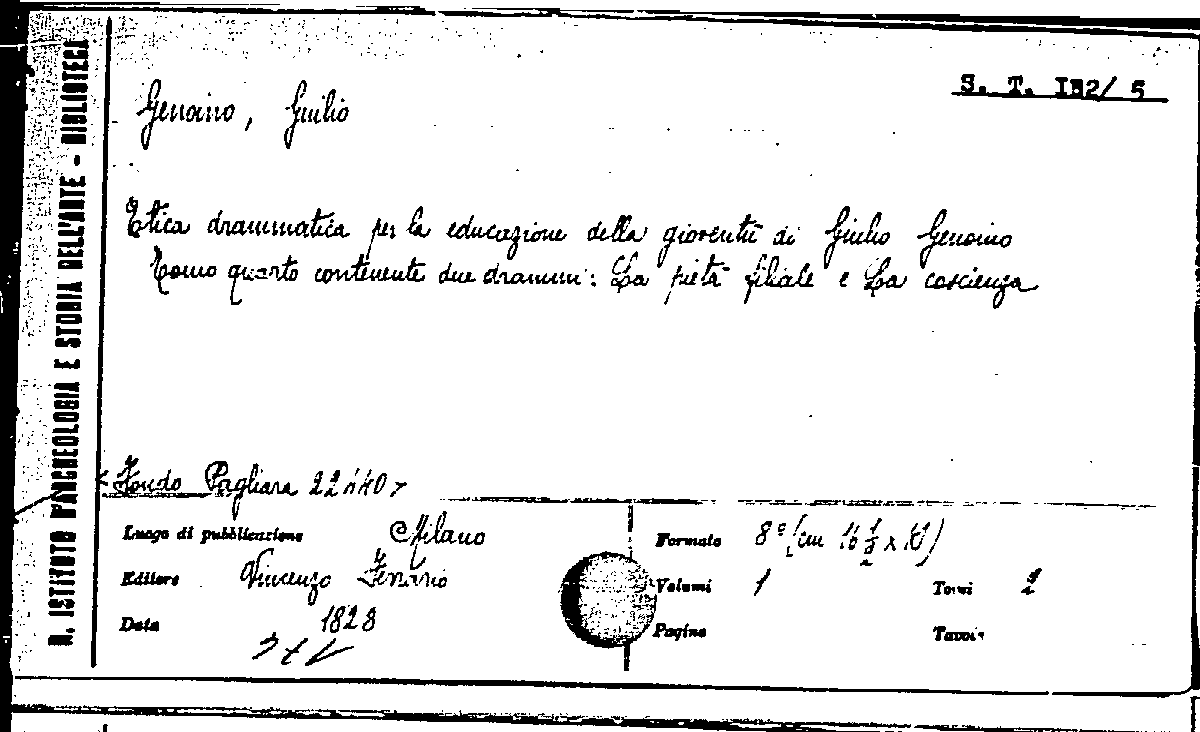 R. ISTITUTO D'ARCHEOLOGIA E STORIA DELL'ARTE - BIBLIOTECA
S. T. IB2/ 5
Genoino, Giulio
Etica drammatica per la educazione della gioventù di Giulio Genoino
Tomo quarto contenente due drammi: La pietà filiale e La coscienza
<Fondo Pagliara 22440>
Luogo di pubblicazione Milano
Formato 8° (cm 16 ½ x
Editore Vincenzo Ferrario
Volumi 1 Tomi
Data 1828
Pagine Tavole